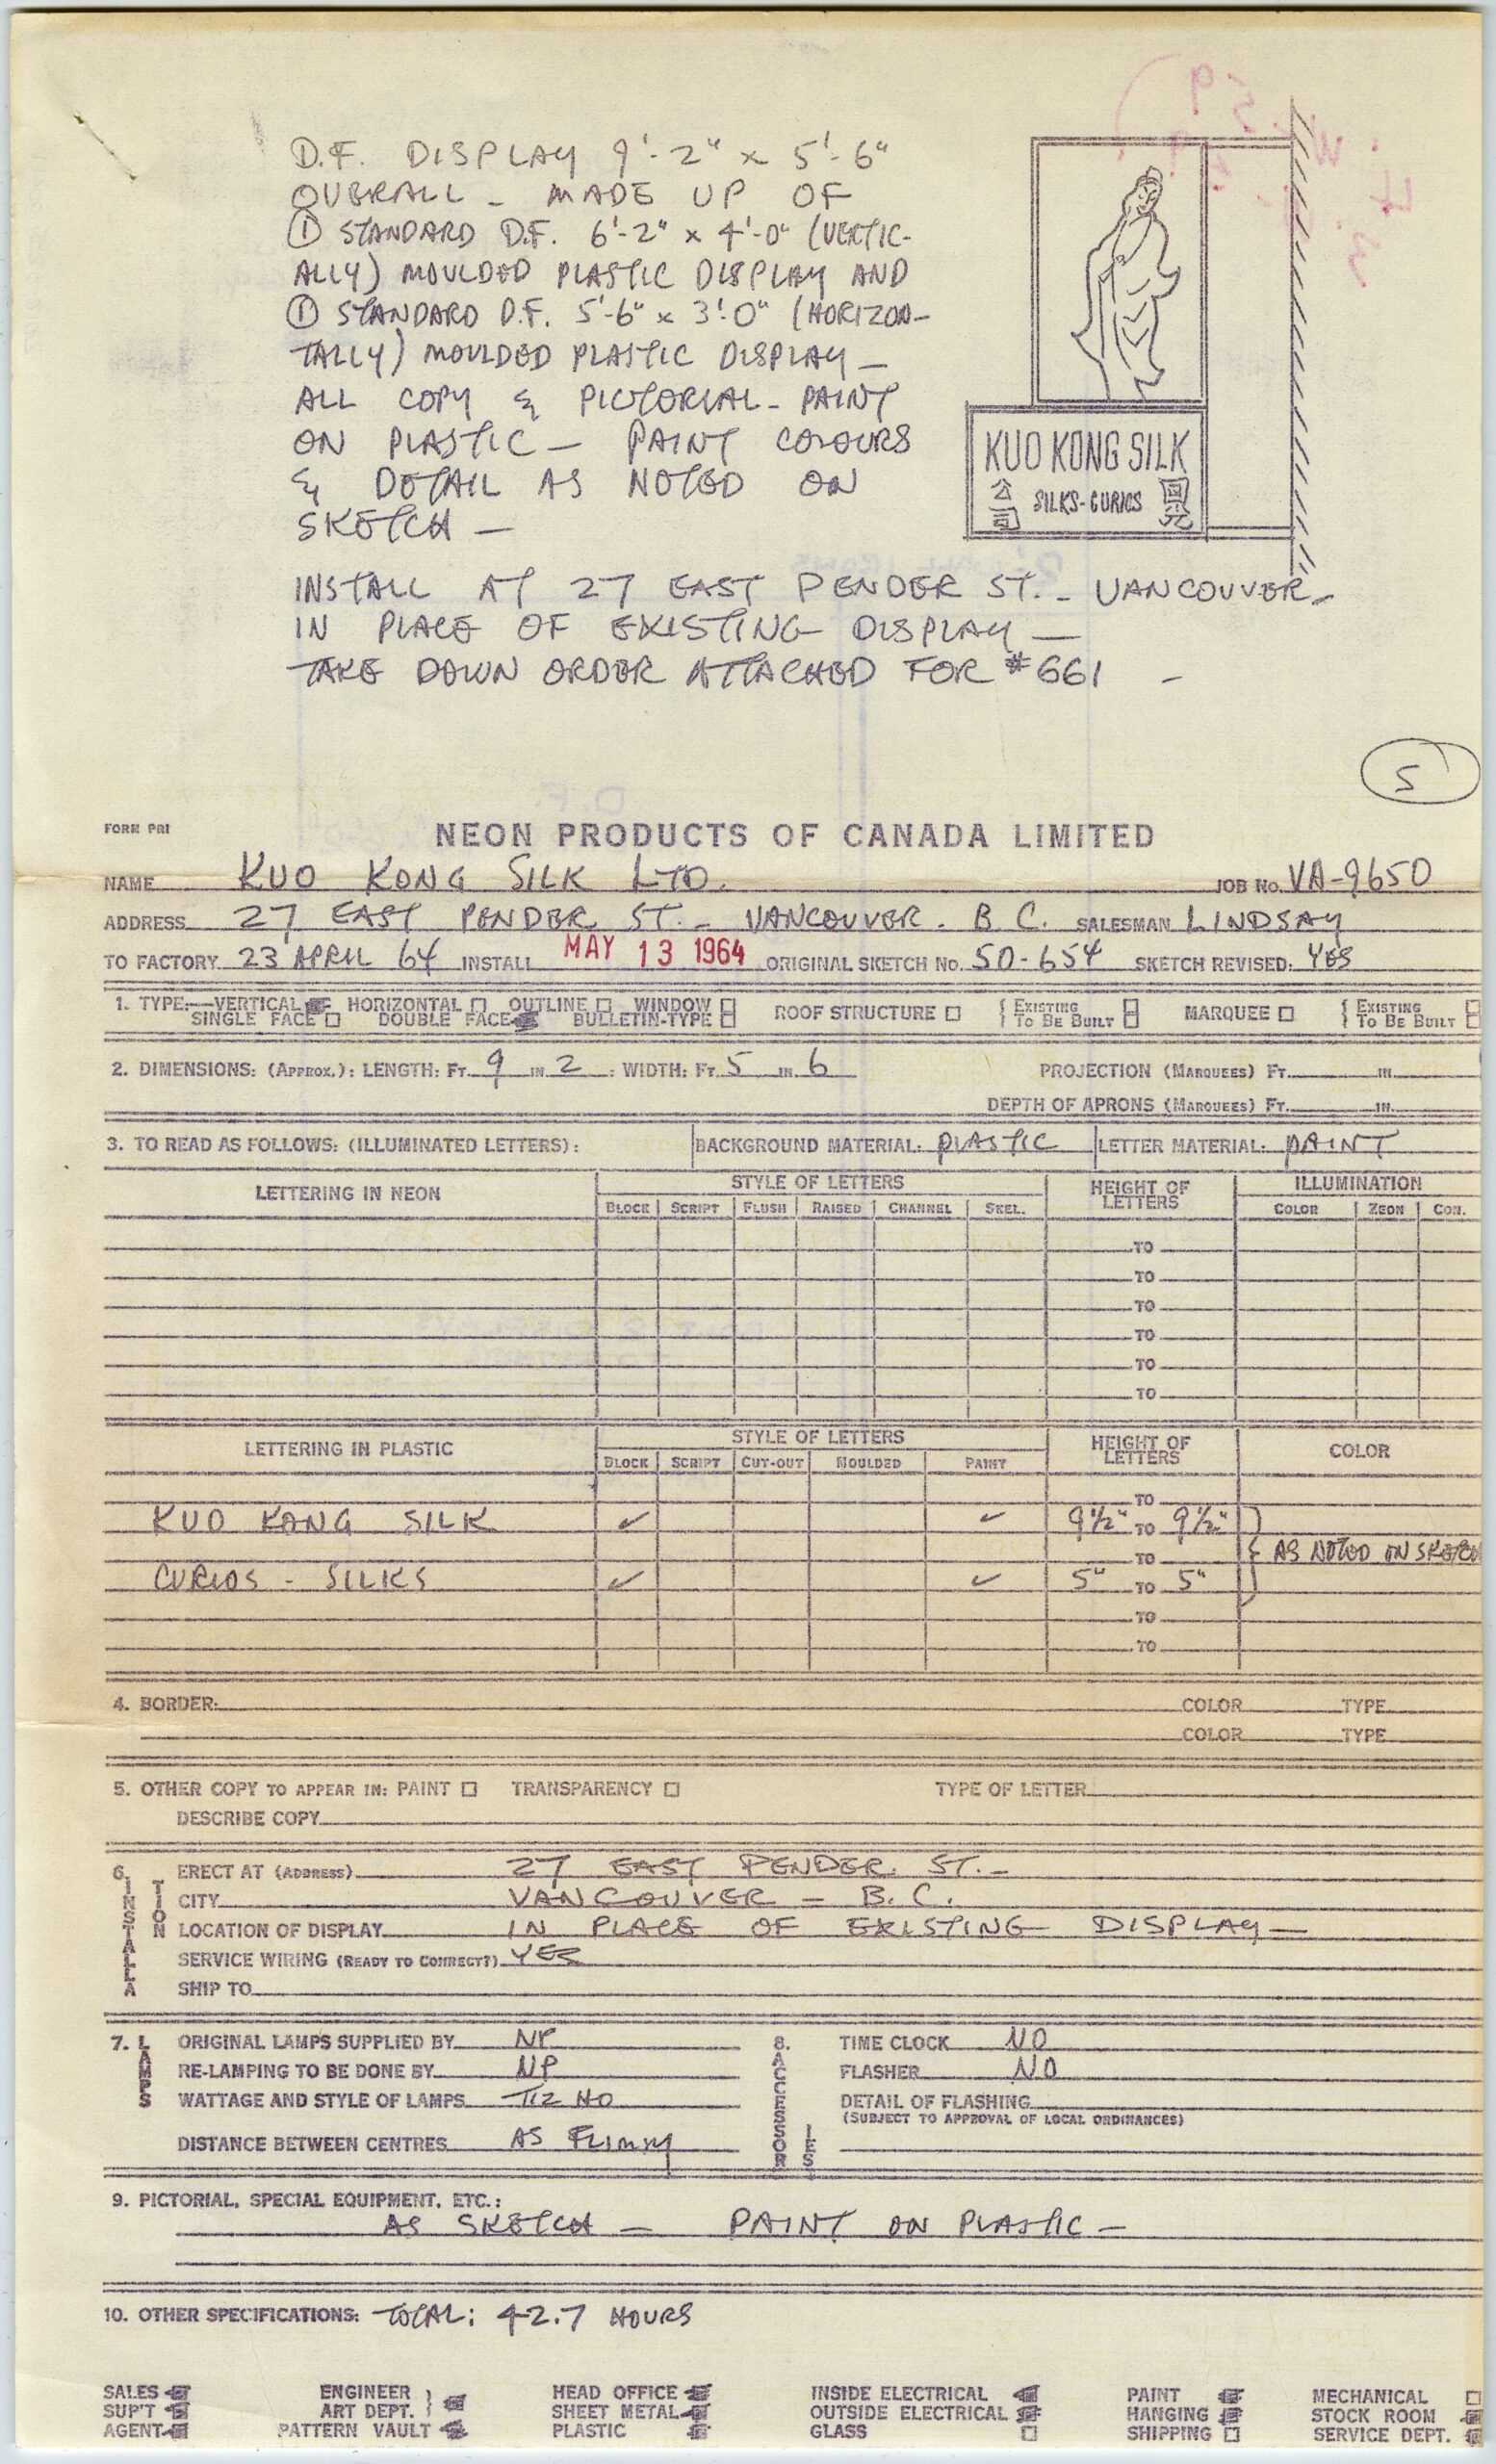 D.F. DISPLAY 9'-2" x 5'-6"
OVERALL - MADE UP OF
① STANDARD D.F. 6'-2" x 4'-0" (VERTIC-
ALLY) MOULDED PLASTIC DISPLAY AND
① STANDARD D.F. 5'-6" x 3'-0" (HORIZON-
TALLY) MOULDED PLASTIC DISPLAY —
ALL COPY & PICTORIAL - PAINT
ON PLASTIC — PAINT COLOURS
& DETAIL AS NOTED ON
SKETCH —
KUO KONG SILK
公司 SILKS-CURIOS 國光
INSTALL AT 27 EAST PENDER ST. - VANCOUVER -
IN PLACE OF EXISTING DISPLAY —
TAKE DOWN ORDER ATTACHED FOR #661 -
5
FORM PRI
NEON PRODUCTS OF CANADA LIMITED
NAME KUO KONG SILK LTD. JOB No. VA-9650
ADDRESS 27 EAST PENDER ST. - VANCOUVER. B C. SALESMAN LINDSAY
TO FACTORY 23 APRIL 64 INSTALL MAY 13 1964 ORIGINAL SKETCH No. 50-654 SKETCH REVISED: YES
1. TYPE:—VERTICAL HORIZONTAL □ OUTLINE □ WINDOW □ ROOF STRUCTURE □ { EXISTING □ MARQUEE □ { EXISTING □
SINGLE FACE □ DOUBLE FACE BULLETIN-TYPE □ TO BE BUILT □ TO BE BUILT □
2. DIMENSIONS: (APPROX.): LENGTH: FT. 9 IN 2 : WIDTH: FT. 5 IN. 6 PROJECTION (MARQUEES) FT. IN.
DEPTH OF APRONS (MARQUEES) FT. IN.
3. TO READ AS FOLLOWS: (ILLUMINATED LETTERS): BACKGROUND MATERIAL: PLASTIC LETTER MATERIAL: PAINT
LETTERING IN NEON STYLE OF LETTERS HEIGHT OF LETTERS ILLUMINATION
BLOCK SCRIPT FLUSH RAISED CHANNEL SKEL. COLOR ZEON CON.
TO
TO
TO
TO
TO
TO
LETTERING IN PLASTIC STYLE OF LETTERS HEIGHT OF LETTERS COLOR
BLOCK SCRIPT CUT-OUT MOULDED PAINT
TO
KUO KONG SILK ✓ ✓ 9½" TO 9½"
TO AS NOTED ON SKETCH
CURIOS - SILKS ✓ ✓ 5" TO 5"
TO
TO
4. BORDER: COLOR TYPE
COLOR TYPE
5. OTHER COPY TO APPEAR IN: PAINT □ TRANSPARENCY □ TYPE OF LETTER
DESCRIBE COPY
6. INSTALLATION
ERECT AT (ADDRESS) 27 EAST PENDER. ST. -
CITY VANCOUVER - B.C.
LOCATION OF DISPLAY IN PLACE OF EXISTING DISPLAY —
SERVICE WIRING (READY TO CONNECT?) YES
SHIP TO
7. LAMPS ORIGINAL LAMPS SUPPLIED BY NP 8. ACCESSORIES TIME CLOCK NO
RE-LAMPING TO BE DONE BY NP FLASHER NO
WATTAGE AND STYLE OF LAMPS T12 HO DETAIL OF FLASHING
(SUBJECT TO APPROVAL OF LOCAL ORDINANCES)
DISTANCE BETWEEN CENTRES AS FLIMSY
9. PICTORIAL, SPECIAL EQUIPMENT, ETC.:
AS SKETCH — PAINT ON PLASTIC —
10. OTHER SPECIFICATIONS: TOTAL: 42.7 HOURS
SALES ENGINEER HEAD OFFICE INSIDE ELECTRICAL PAINT MECHANICAL □
SUP'T ART DEPT. SHEET METAL OUTSIDE ELECTRICAL HANGING STOCK ROOM
AGENT PATTERN VAULT PLASTIC GLASS □ SHIPPING □ SERVICE DEPT.